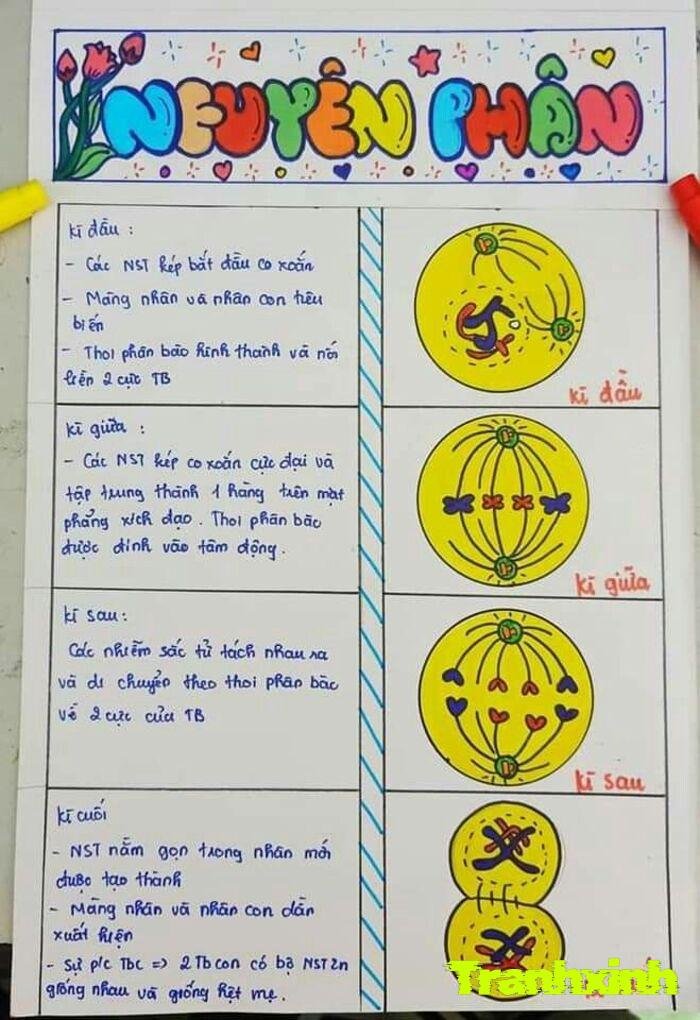 NGUYÊN PHÂN
kì đầu :
- Các NST kép bắt đầu co xoắn
- Màng nhân và nhân con tiêu
biến
- Thoi phân bào hình thành và nối
liền 2 cực TB
kì đầu
kì giữa :
- Các NST kép co xoắn cực đại và
tập trung thành 1 hàng trên mặt
phẳng xích đạo. Thoi phân bào
được đính vào tâm động.
kì giữa
kì sau:
Các nhiễm sắc tử tách nhau ra
và di chuyển theo thoi phân bào
về 2 cực của TB
kì sau
kì cuối
- NST nằm gọn trong nhân mới
được tạo thành
- Màng nhân và nhân con dần
xuất hiện
- Sự p/c TBC => 2 Tb con có bộ NST 2n
giống nhau và giống hệt mẹ.
Tranhxinh